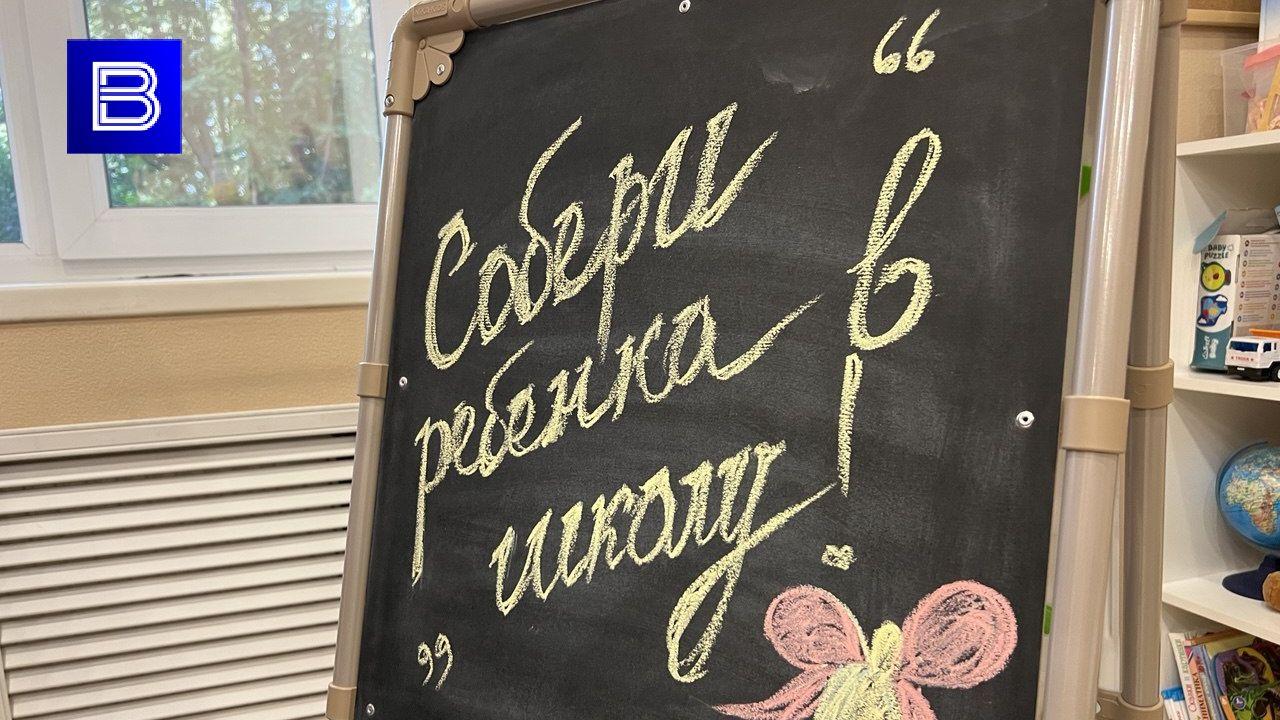 В
“
Собери
в
ребенка
школу!
”
BABY
PUZZLE